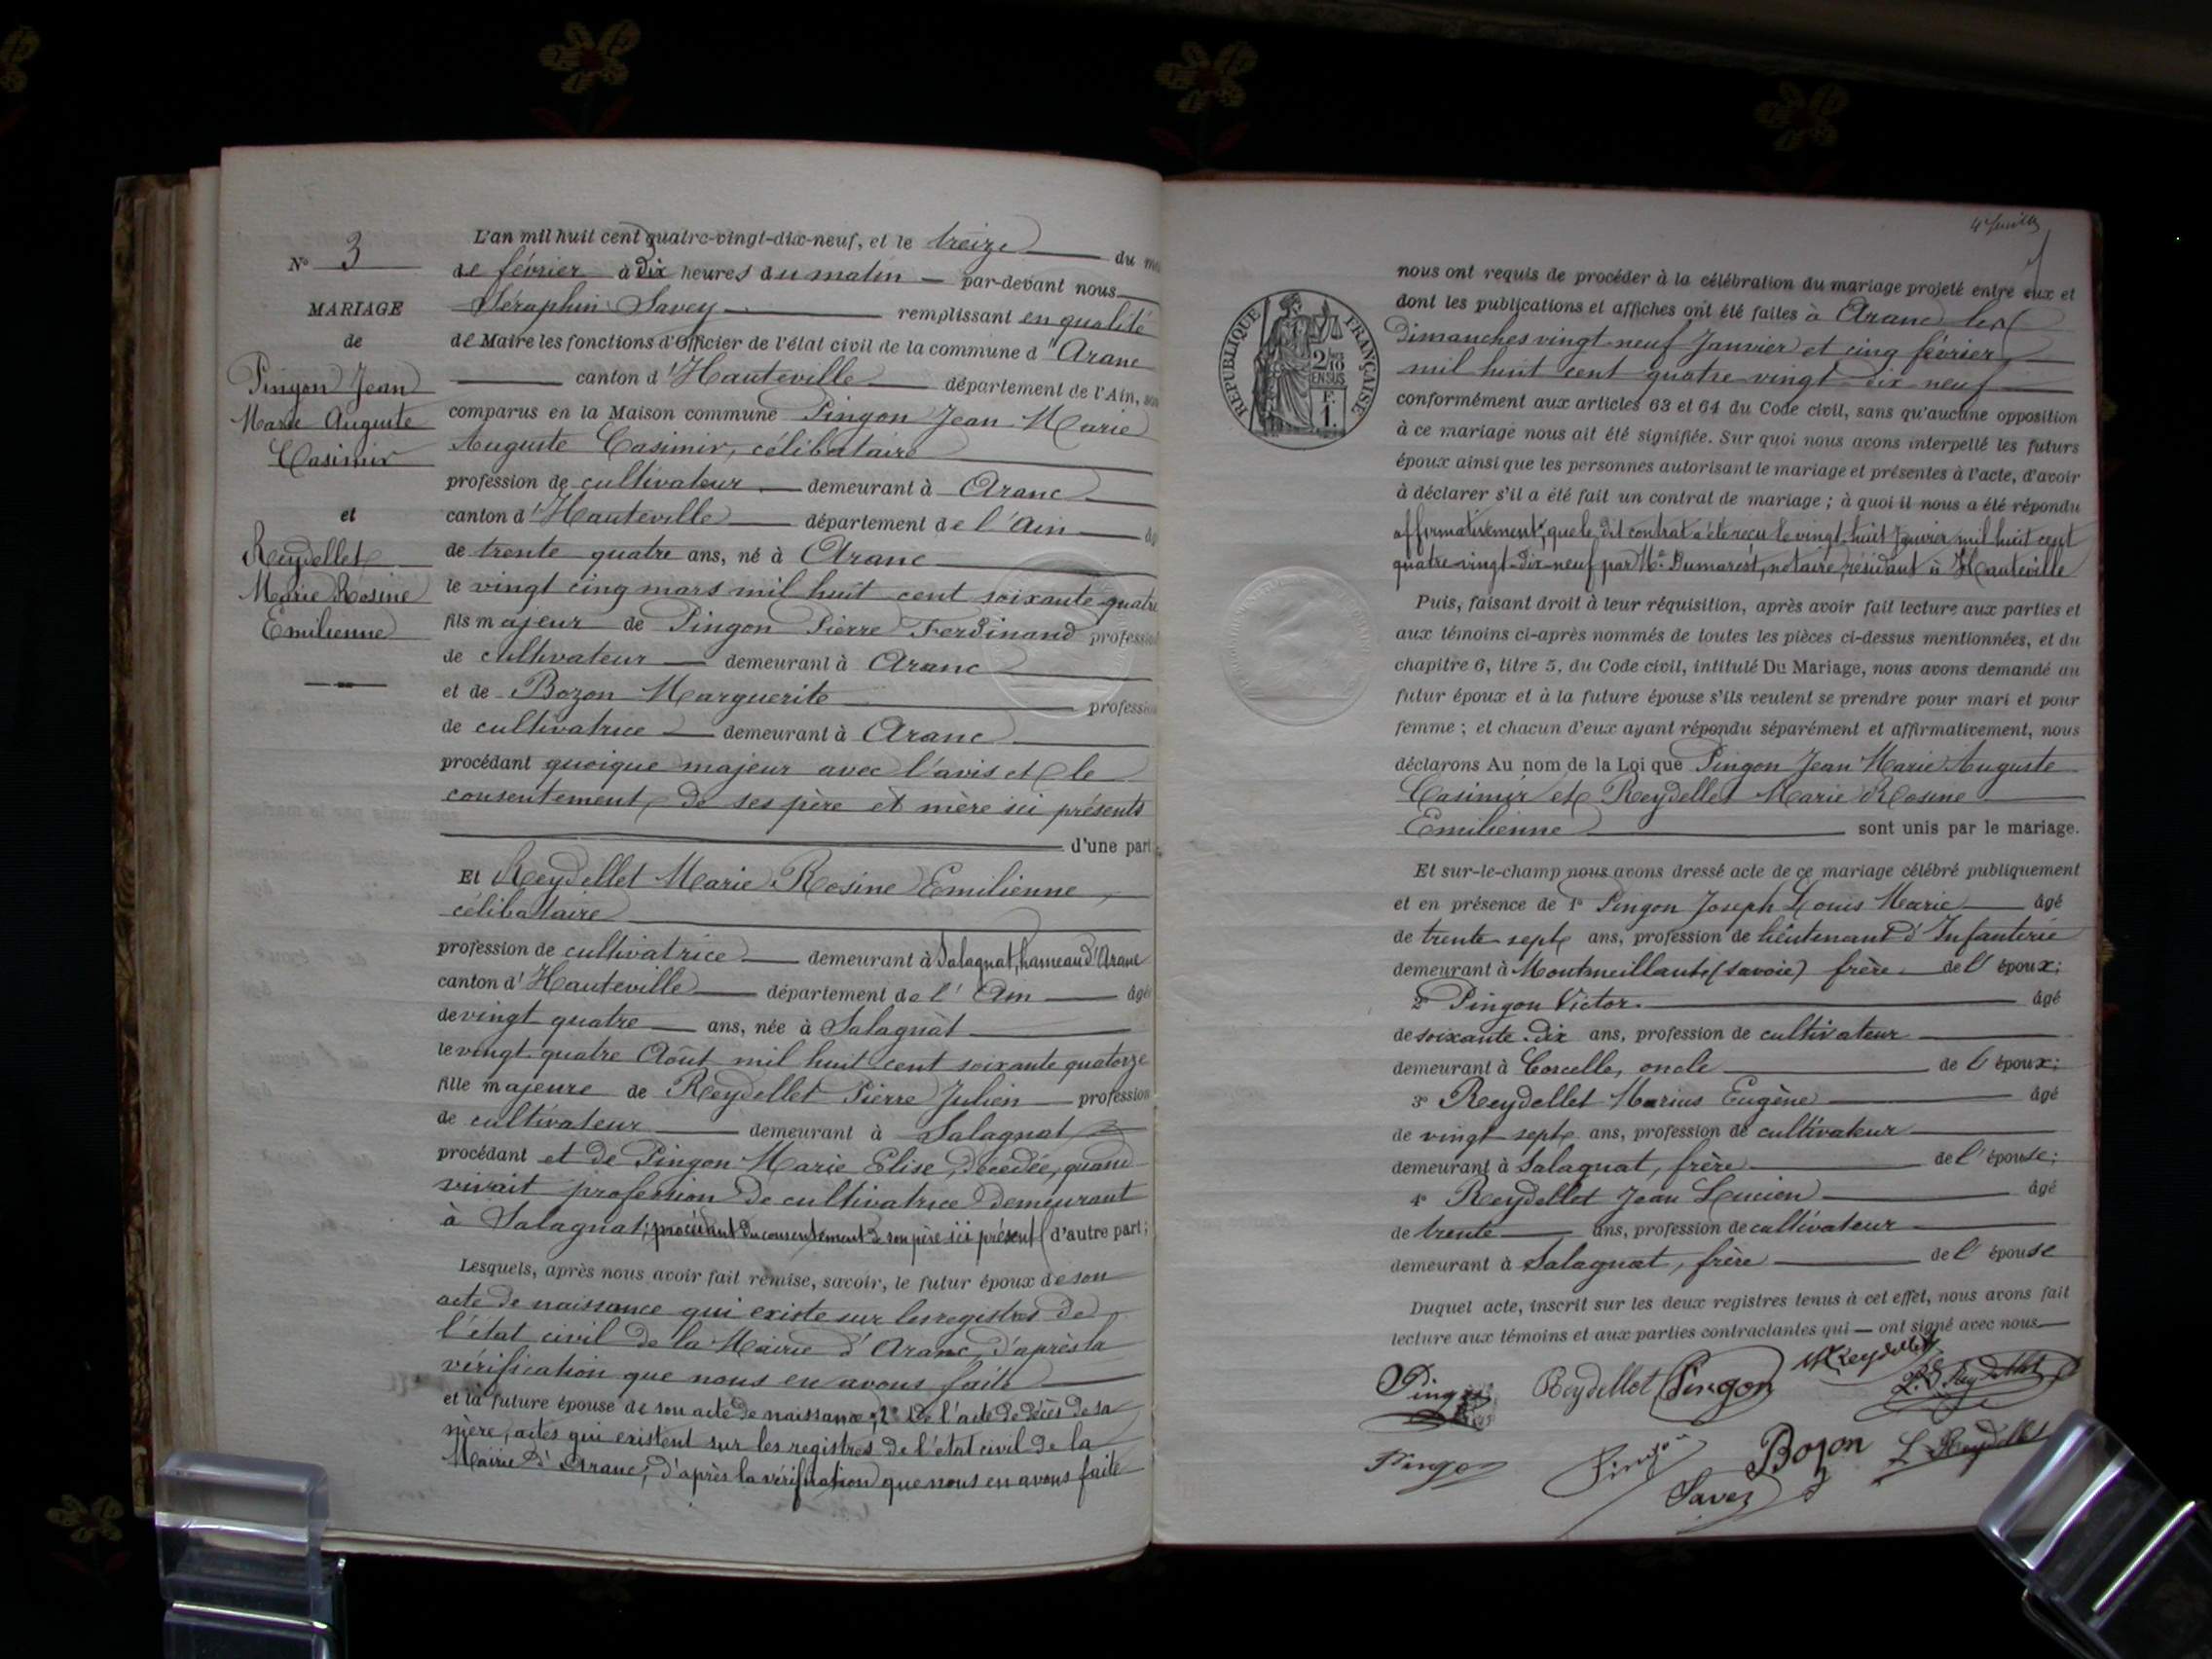 N° 3
MARIAGE
de
Pingon Jean
Marie Auguste
Casimir
et
Reydellet
Marie Rosine
Emilienne
L'an mil huit cent quatre-vingt-dix-neuf, et le treize du
de février à dix heures du matin par-devant nous
Séraphin Savey remplissant en qualité
de Maire les fonctions d'Officier de l'état civil de la commune d'Aranc
canton d'Hauteville département de l'Ain,
comparus en la Maison commune Pingon Jean Marie
Auguste Casimir, célibataire
profession de cultivateur demeurant à Aranc
canton d'Hauteville département de l'Ain
de trente quatre ans, né à Aranc
le vingt cinq mars mil huit cent soixante quatre
fils majeur de Pingon Pierre Ferdinand profession
de cultivateur demeurant à Aranc
et de Bozon Marguerite profession
de cultivatrice demeurant à Aranc
procédant quoique majeur avec l'avis et le
consentement de ses père et mère ici présents
d'une part
Et Reydellet Marie Rosine Emilienne,
célibataire
profession de cultivatrice demeurant à Salagnat, hameau d'Aranc
canton d'Hauteville département de l'Ain âgé
de vingt quatre ans, née à Salagnat
le vingt-quatre Août mil huit cent soixante quatorze
fille majeure de Reydellet Pierre Julien profession
de cultivateur demeurant à Salagnat
procédant et de Pingon Marie Elise, décédée, quand
vivait profession de cultivatrice demeurant
à Salagnat, procédant du consentement de son père ici présent d'autre part;
Lesquels, après nous avoir fait remise, savoir, le futur époux de son
acte de naissance qui existe sur les registres de
l'état civil de la Mairie d'Aranc, d'après la
vérification que nous en avons faite
et la future épouse de son acte de naissance; 2° de l'acte de décès de sa
mère, actes qui existent sur les registres de l'état civil de la
Mairie d'Aranc, d'après la vérification que nous en avons faite
4e feuillet
RÉPUBLIQUE FRANÇAISE
2/10
EN SUS
F.
1.
nous ont requis de procéder à la célébration du mariage projeté entre eux et
dont les publications et affiches ont été faites à Aranc les
Dimanches vingt-neuf Janvier et cinq février
mil huit cent quatre vingt dix neuf
conformément aux articles 63 et 64 du Code civil, sans qu'aucune opposition
à ce mariage nous ait été signifiée. Sur quoi nous avons interpellé les futurs
époux ainsi que les personnes autorisant le mariage et présentes à l'acte, d'avoir
à déclarer s'il a été fait un contrat de mariage; à quoi il nous a été répondu
affirmativement, que le dit contrat a été reçu le vingt-huit Janvier mil huit cent
quatre-vingt-dix-neuf par Me Dumarest, notaire, résidant à Hauteville
Puis, faisant droit à leur réquisition, après avoir fait lecture aux parties et
aux témoins ci-après nommés de toutes les pièces ci-dessus mentionnées, et du
chapitre 6, titre 5, du Code civil, intitulé Du Mariage, nous avons demandé au
futur époux et à la future épouse s'ils veulent se prendre pour mari et pour
femme; et chacun d'eux ayant répondu séparément et affirmativement, nous
déclarons Au nom de la Loi que Pingon Jean Marie Auguste
Casimir et Reydellet Marie Rosine
Emilienne sont unis par le mariage.
Et sur-le-champ nous avons dressé acte de ce mariage célébré publiquement
et en présence de 1° Pingon Joseph Louis Marie âgé
de trente-sept ans, profession de lieutenant d'Infanterie
demeurant à (Savoie) frère de l'époux;
2° Pingon Victor âgé
de soixante-dix ans, profession de cultivateur
demeurant à Corcelle, oncle de l'époux;
3° Reydellet Marius Eugène âgé
de vingt sept ans, profession de cultivateur
demeurant à Salagnat, frère de l'épouse;
4° Reydellet Jean Lucien âgé
de trente ans, profession de cultivateur
demeurant à Salagnat, frère de l'épouse
Duquel acte, inscrit sur les deux registres tenus à cet effet, nous avons fait
lecture aux témoins et aux parties contractantes qui ont signé avec nous
Pingon Reydellet Pingon M Reydellet Reydellet
Pingon Pingon Bozon L Reydellet
Savey